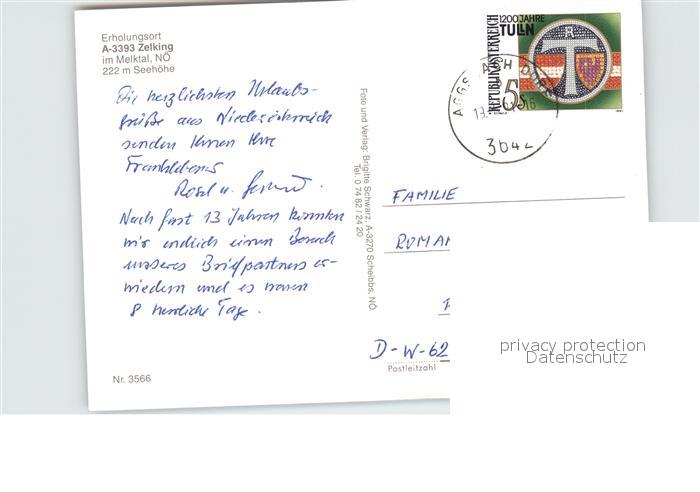 Erholungsort
A-3393 Zelking
im Melktal, NÖ
222 m Seehöhe
Die herzlichsten Urlaubs-
grüße aus Niederösterreich
senden Ihnen Ihre
Rosel u.
Nach fast 13 Jahren konnten
wir endlich einen Besuch
unseres Briefpartners er-
wiedern und es waren
8 herrliche Tage.
Nr. 3566
Foto und Verlag: Brigitte Schwarz, A-3270 Scheibbs, NÖ
Tel. 0 74 82 / 24 20
1200 JAHRE
TULLN
REPUBLIK ÖSTERREICH
5S
3642
FAMILIE
ROMAN
D-W-62
Postleitzahl
privacy protection
Datenschutz